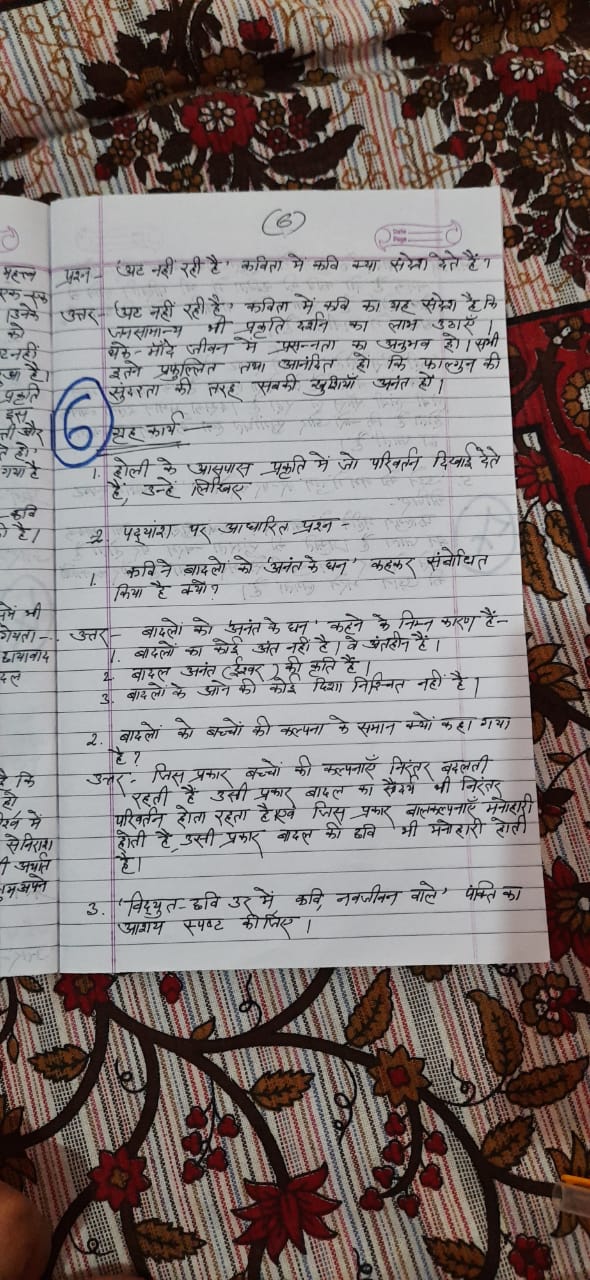 (6)
Date
Page
प्रश्न - 'अट नहीं रही है' कविता में कवि क्या संदेश देते हैं।
उत्तर - 'अट नहीं रही है' कविता में कवि का यह संदेश है कि
जनसामान्य भी प्रकृति दर्शन का लाभ उठाएँ।
थके-माँदे जीवन में प्रसन्नता का अनुभव हो। सभी
इतने प्रफुल्लित तथा आनंदित हो कि फाल्गुन की
सुंदरता की तरह सबकी खुशियाँ अनंत हों।
6
ग्रह कार्य -
1. होली के आसपास प्रकृति में जो परिवर्तन दिखाई देते
हैं, उन्हें लिखिए
2. पद्यांश पर आधारित प्रश्न -
1. कवि ने बादलों को 'अनंत के घन' कहकर संबोधित
किया है क्यों?
उत्तर - बादलों को 'अनंत के घन' कहने के निम्न कारण हैं-
1. बादलों का कोई अंत नहीं है। वे अंतहीन हैं।
2. बादल अनंत (ईश्वर) की कृति हैं।
3. बादलों के आने की कोई दिशा निश्चित नहीं है।
2. बादलों को बच्चों की कल्पना के समान क्यों कहा गया
है?
उत्तर - जिस प्रकार बच्चों की कल्पनाएँ निरंतर बदलती
रहती हैं उसी प्रकार बादल का सौंदर्य भी निरंतर
परिवर्तन होता रहता है एवं जिस प्रकार बालकल्पनाएँ मनोहारी
होती है, उसी प्रकार बादल की छवि भी मनोहारी होती
है।
3. 'विद्युत-छवि उर में कवि, नवजीवन वाले' पंक्ति का
आशय स्पष्ट कीजिए।